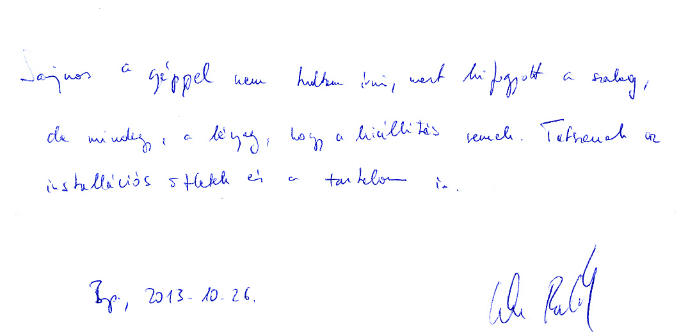 Sajnos a géppel nem tudtam írni, mert kifogyott a szalag,
de mindegy, a lényeg, hogy a kiállítás remek. Tetszenek az
installációs ötletek és a tartalom is.
Bp., 2013-10-26.